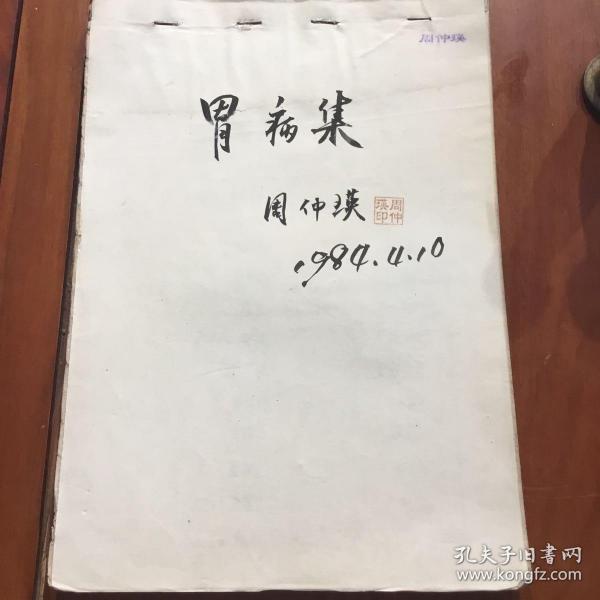 周仲瑛
胃病集
周仲瑛
周仲
瑛印
1984.4.10
孔夫子旧书网
www.kongfz.com